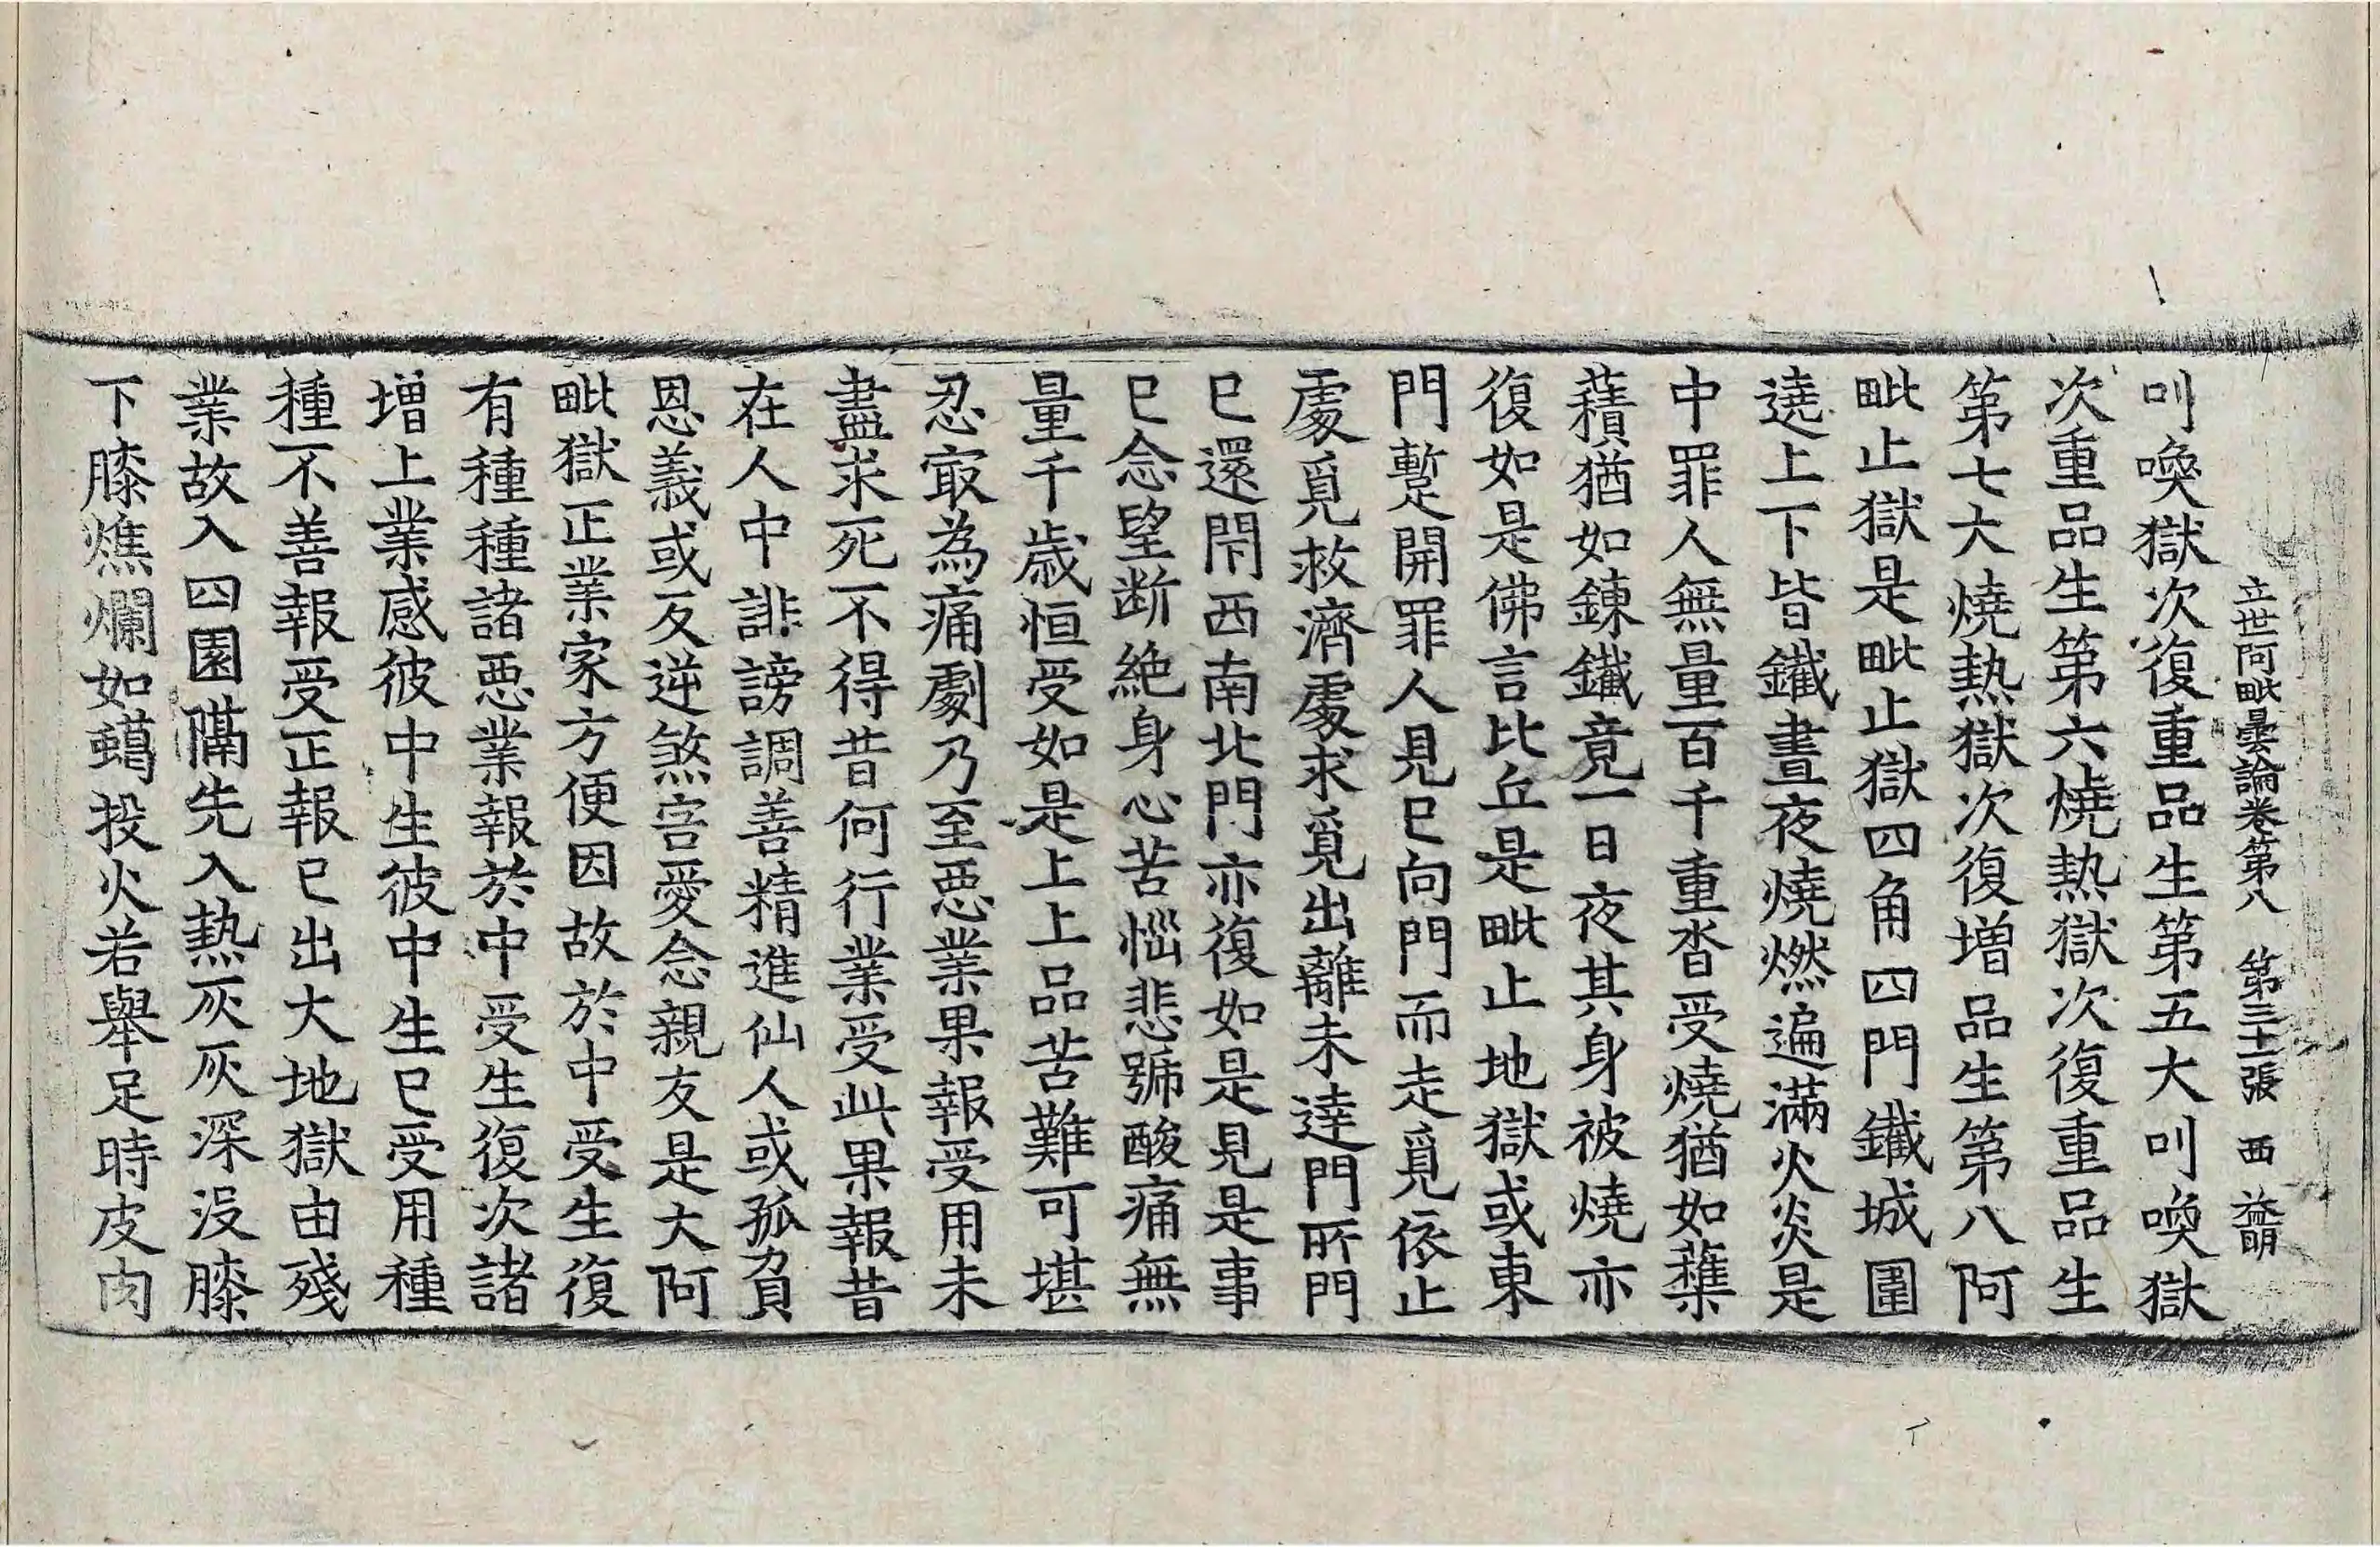 立世阿毗曇論卷第八 第三十一張 西 益明
叫喚獄次復重品生第五大叫喚獄
次重品生第六燒熱獄次復重品生
第七大燒熱獄次復增品生第八阿
毗止獄是毗止獄四角四門鐵城圍
遶上下皆鐵晝夜燒燃遍滿火炎是
中罪人無量百千重沓受燒猶如藂
積猶如鍊鐵竟一日夜其身被燒亦
復如是佛言比丘是毗止地獄或東
門蹔開罪人見已向門而走覓依止
處覓救濟處求覓出離未達門所門
已還閇西南北門亦復如是見是事
已念望断絶身心苦惱悲號酸痛無
量千歲恒受如是上上品苦難可堪
忍㝡為痛劇乃至惡業果報受用未
盡求死不得昔何行業受此果報昔
在人中誹謗調善精進仙人或孤負
恩義或反逆煞害愛念親友是大阿
毗獄正業家方便因故於中受生復
有種種諸惡業報於中受生復次諸
增上業感彼中生彼中生已受用種
種不善報受正報已出大地獄由殘
業故入四園隔先入熱灰灰深没膝
下膝燋爛如蠟投火若舉足時皮肉